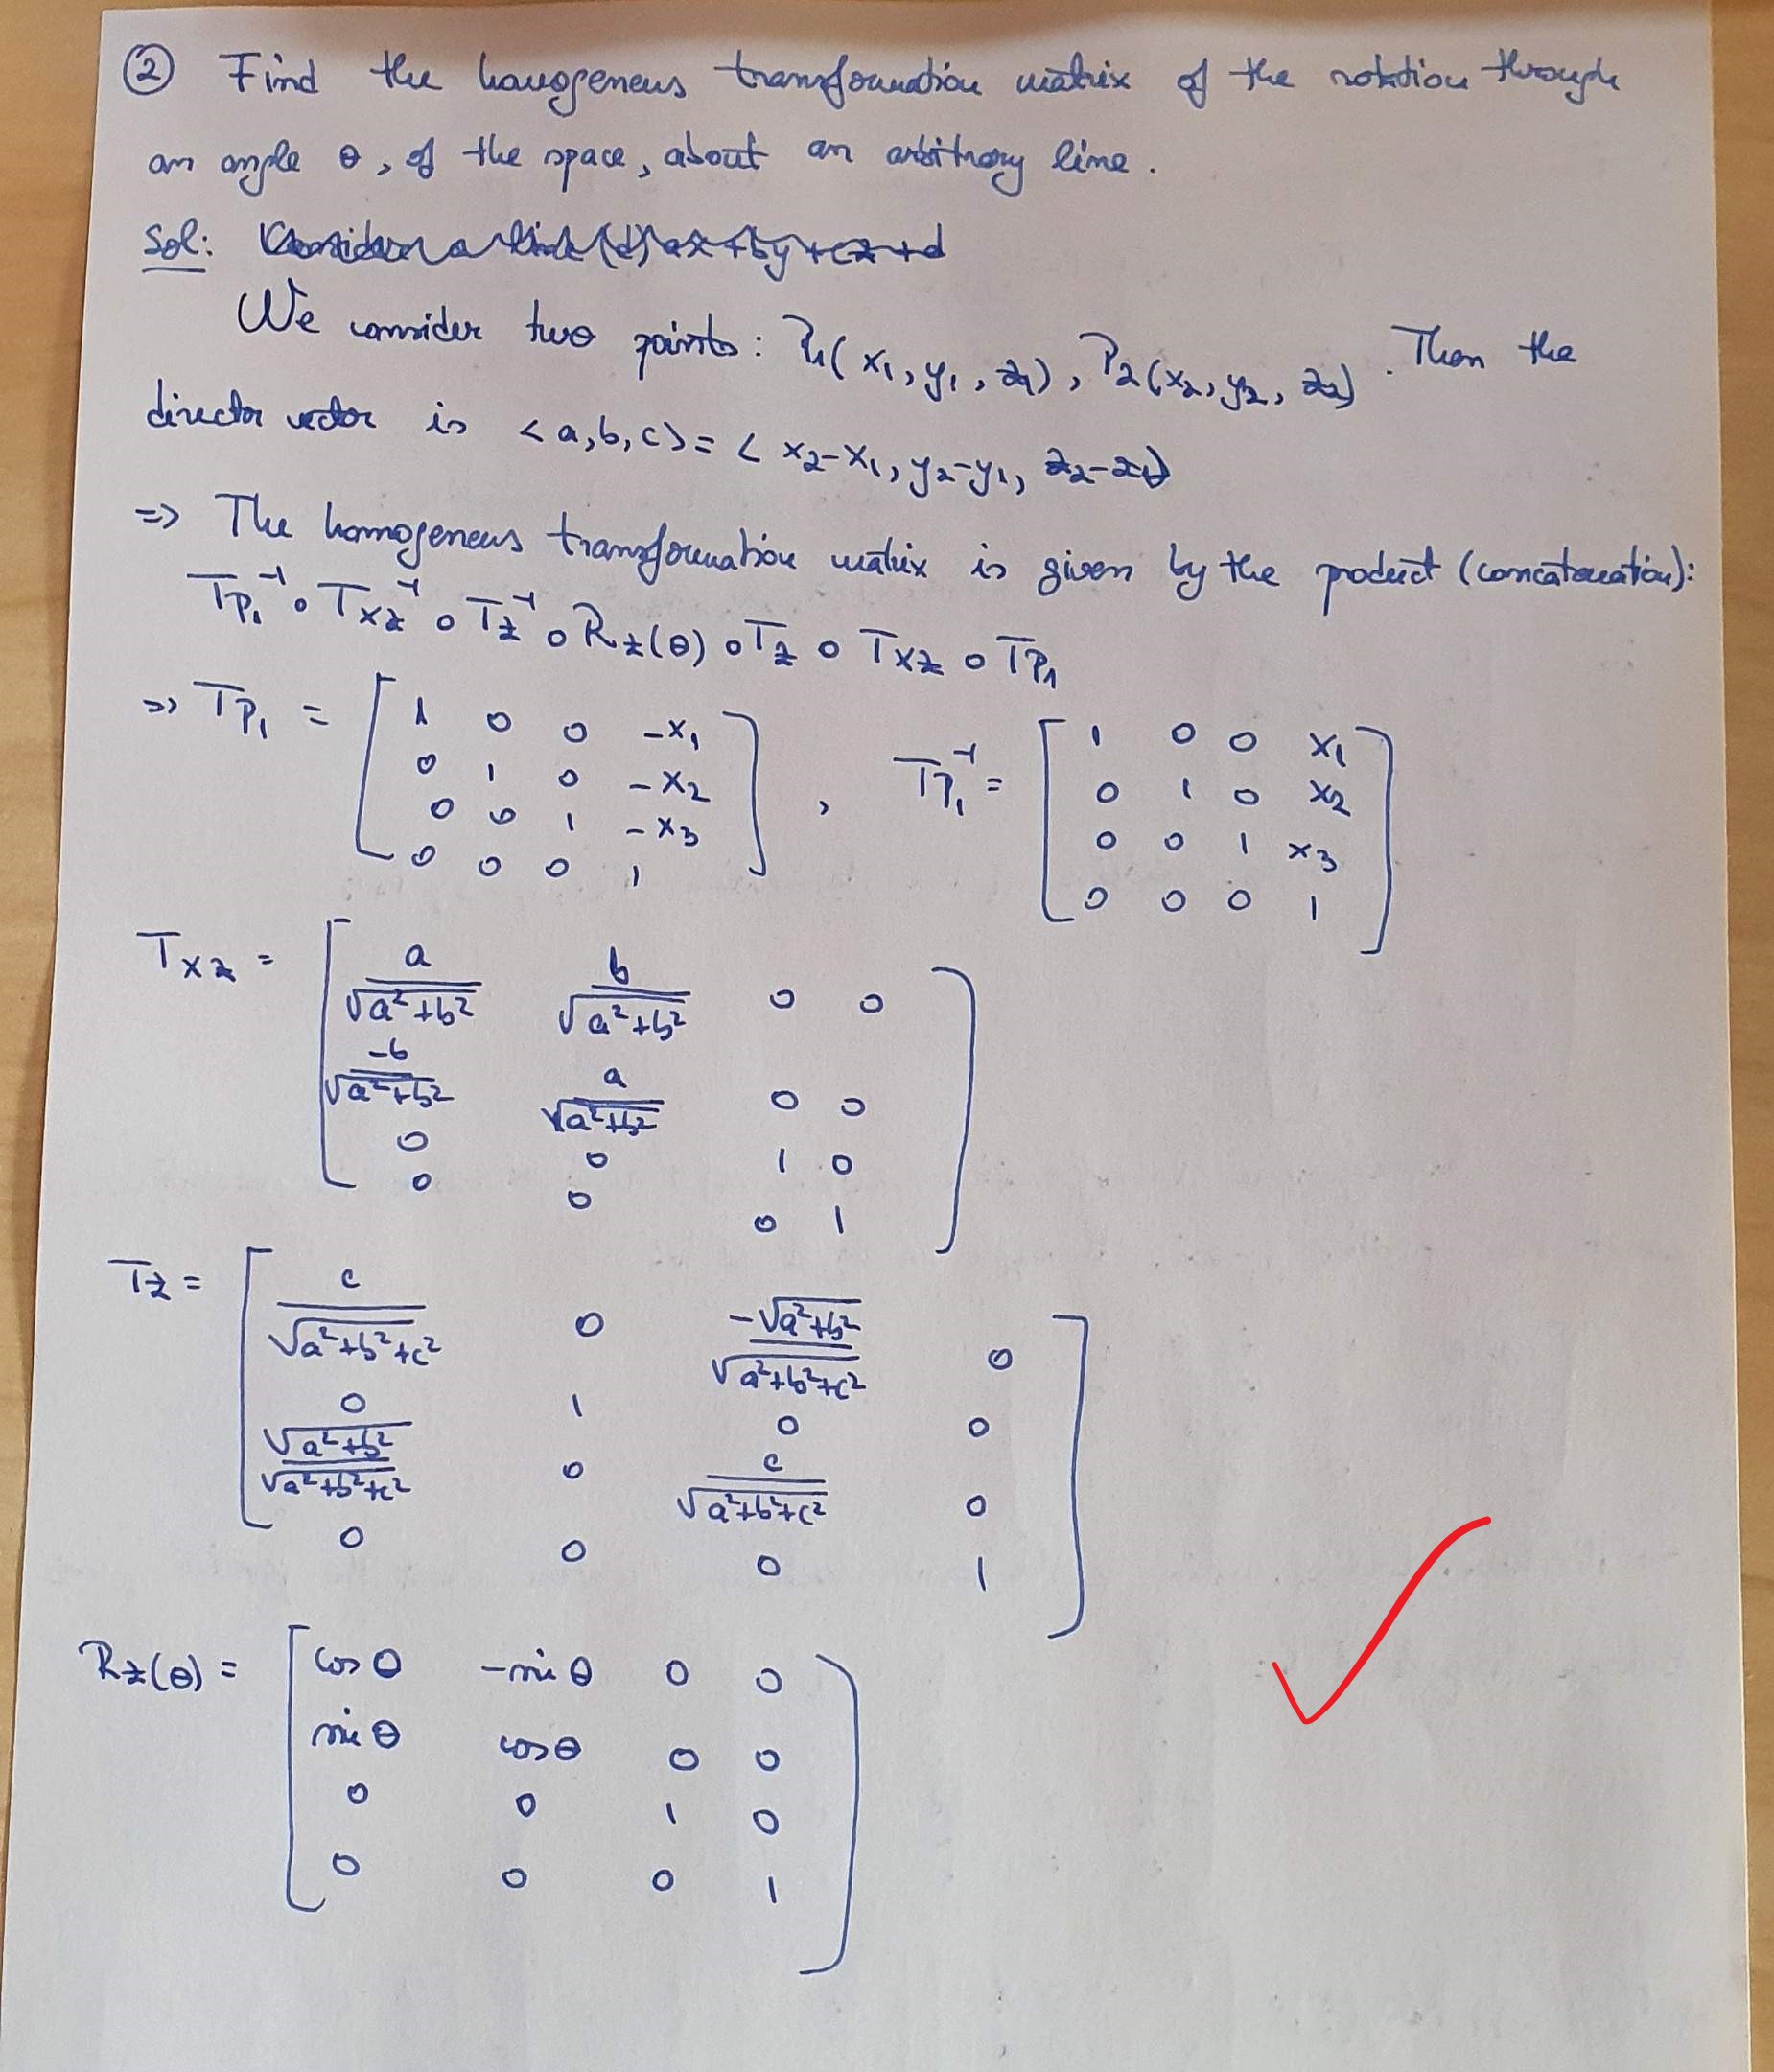 ② Find the homogeneus transformation matrix of the rotation through
an angle θ, of the space, about an arbitrary line.
Sol: Consider a line (d) ax+by+cz+d
We consider two points: P₁(x₁, y₁, z₁), P₂(x₂, y₂, z₂). Then the
director vector is <a,b,c> = < x₂-x₁, y₂-y₁, z₂-z₁>
=> The homogeneus transformation matrix is given by the product (concatenation):
T_P₁⁻¹ ∘ T_xz⁻¹ ∘ T_z⁻¹ ∘ R_z(θ) ∘ T_z ∘ T_xz ∘ T_P₁
=> T_P₁ = [ 1 0 0 -x₁ ] , T_P₁⁻¹ = [ 1 0 0 x₁ ]
0 1 0 -x₂ 0 1 0 x₂
0 0 1 -x₃ 0 0 1 x₃
0 0 0 1 0 0 0 1
T_xz = [ a/√(a²+b²) b/√(a²+b²) 0 0 ]
-b/√(a²+b²) a/√(a²+b²) 0 0
0 0 1 0
0 0 0 1
T_z = [ c/√(a²+b²+c²) 0 -√(a²+b²)/√(a²+b²+c²) 0 ]
0 1 0 0
√(a²+b²)/√(a²+b²+c²) 0 c/√(a²+b²+c²) 0
0 0 0 1
R_z(θ) = [ cos θ -sin θ 0 0 ]
sin θ cos θ 0 0
0 0 1 0
0 0 0 1